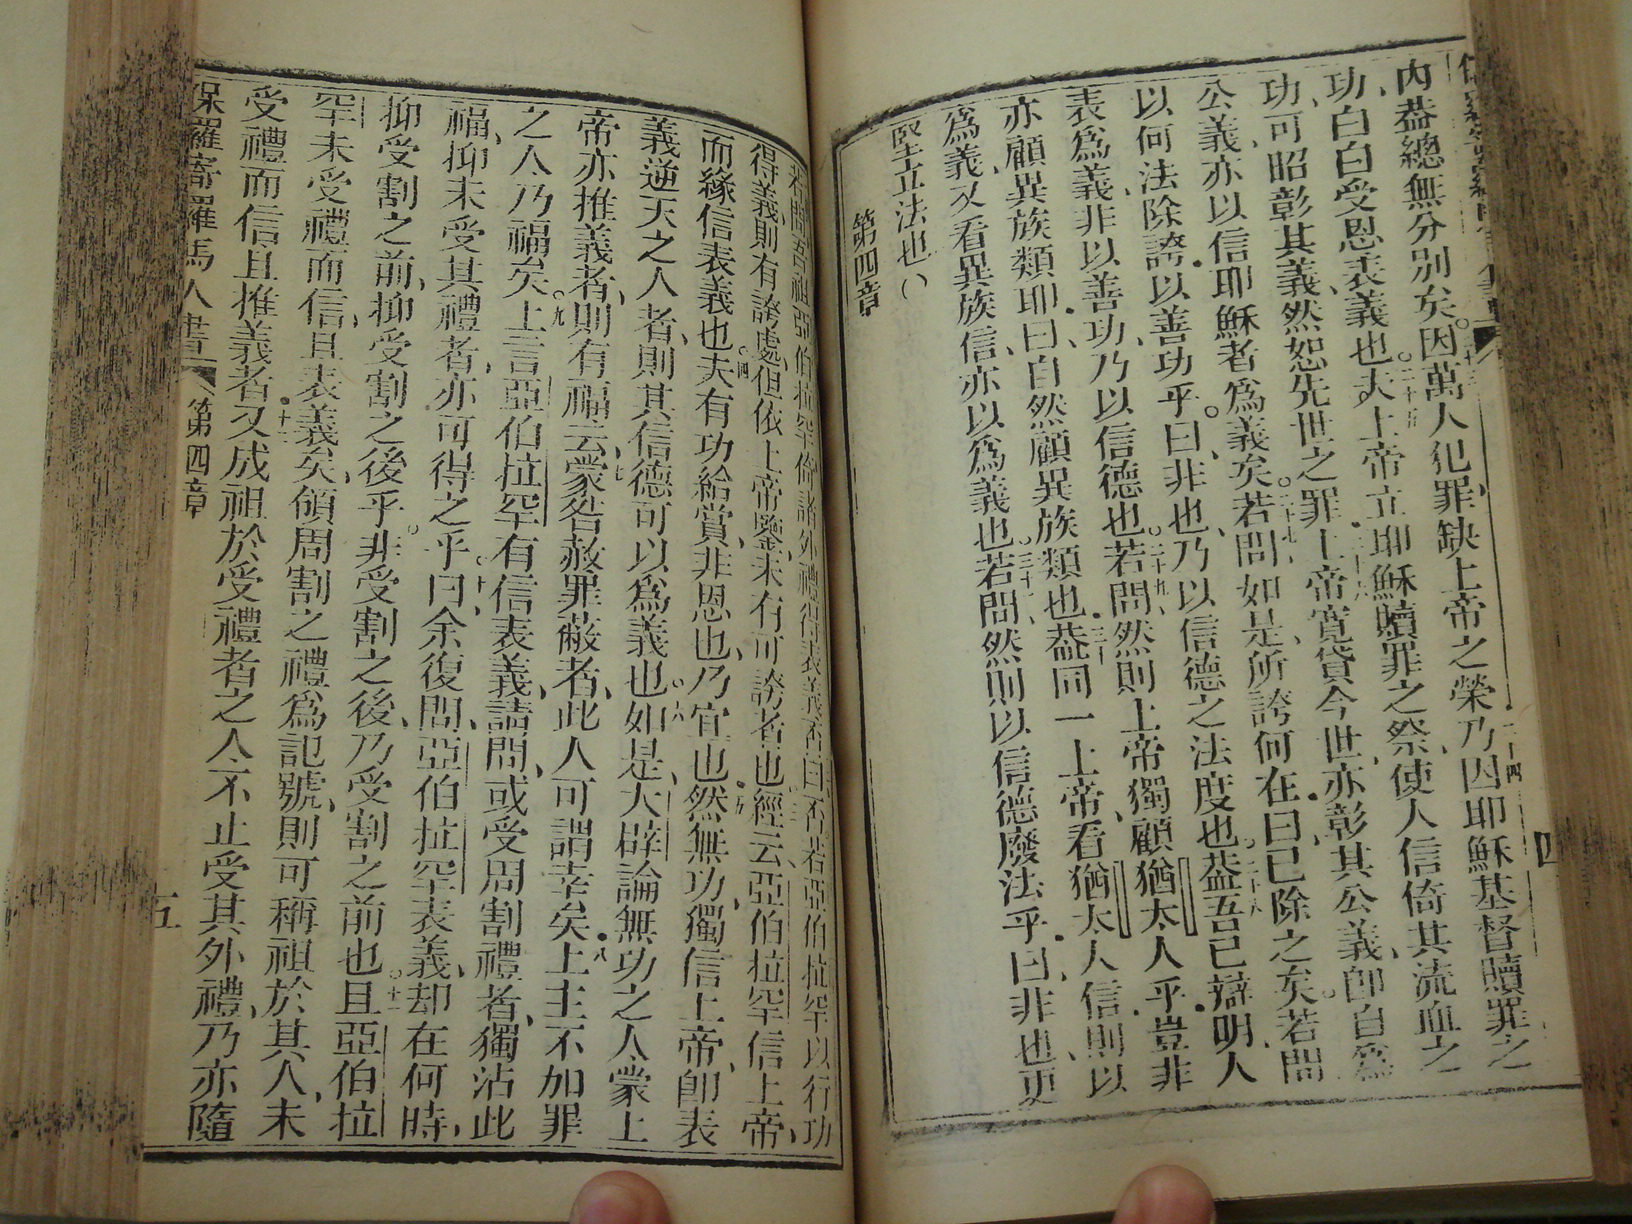 內蓋總無分別矣因萬人犯罪缺上帝之榮乃因耶穌基督贖罪之
功白白受恩表義也夫上帝立耶穌贖罪之祭使人信倚其流血之
功可昭彰其義然恕先世之罪上帝寬貸今世亦彰其公義卽自爲
公義亦以信耶穌者爲義矣若問如是所誇何在曰已除之矣若問
以何法除誇以善功乎曰非也乃以信德之法度也蓋吾已辯明人
表爲義非以善功乃以信德也若問然則上帝獨顧猶太人乎豈非
亦顧異族類耶曰自然顧異族類也蓋同一上帝看猶太人信則以
爲義又看異族信亦以爲義也若問然則以信德廢法乎曰非也更
堅立法也
第四章
若問吾祖亞伯拉罕倚諸外禮得表義否曰否若亞伯拉罕以行功
得義則有誇處但依上帝鑒未有可誇者也經云亞伯拉罕信上帝
而緣信表義也夫有功給賞非恩也乃宜也然無功獨信上帝卽表
義逆天之人者則其信德可以爲義也如是大辟論無功之人蒙上
帝亦推義者則有福云蒙咎赦罪蔽者此人可謂幸矣上主不加罪
之人乃福矣上言亞伯拉罕有信表義請問或受周割禮者獨沾此
福抑未受其禮者亦可得之乎曰余復問亞伯拉罕表義却在何時
抑受割之前抑受割之後乎非受割之後乃受割之前也且亞伯拉
罕未受禮而信且表義矣領周割之禮爲記號則可稱祖於其人未
受禮而信且推義者又成祖於受禮者之人不止受其外禮乃亦隨
保羅寄羅馬人書 第四章 五